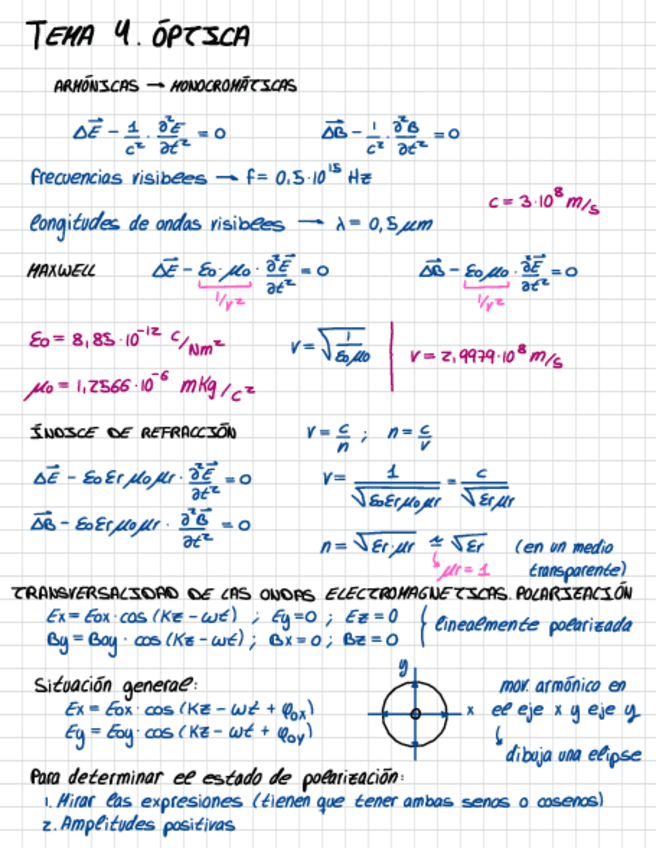 TEMA 4. ÓPTICA
ARMÓNICAS → MONOCROMÁTICAS
ΔE⃗ - 1/c² · ∂²E⃗/∂t² = 0   ΔB⃗ - 1/c² · ∂²B⃗/∂t² = 0
frecuencias visibles → f = 0,5·10¹⁵ Hz
c = 3·10⁸ m/s
longitudes de ondas visibles → λ = 0,5 μm
MAXWELL   ΔE⃗ - ε₀·μ₀ · ∂²E⃗/∂t² = 0   ΔB⃗ - ε₀μ₀ · ∂²E⃗/∂t² = 0
1/v²   1/v²
ε₀ = 8,85·10⁻¹² C/Nm²   v = √(1/ε₀μ₀) | v = 2,9979·10⁸ m/s
μ₀ = 1,2566·10⁻⁶ mKg/C²
ÍNDICE DE REFRACCIÓN   v = c/n ; n = c/v
ΔE⃗ - ε₀εrμ₀μr · ∂²E⃗/∂t² = 0   v = 1/√(ε₀εrμ₀μr) = c/√(εrμr)
ΔB⃗ - ε₀εrμ₀μr · ∂²B⃗/∂t² = 0
n = √(εr·μr) ≃ √εr (en un medio
μr = 1   transparente)
TRANSVERSALIDAD DE LAS ONDAS ELECTROMAGNETICAS. POLARIZACIÓN
Ex = Eox·cos (Kz - ωt) ; Ey = 0 ; Ez = 0
By = Boy · cos (Kz - ωt) ; Bx = 0 ; Bz = 0
linealmente polarizada
Situación general:
Ex = Eox · cos (Kz - ωt + φox)
Ey = Eoy · cos (Kz - ωt + φoy)
y
x
mov. armónico en
el eje x y eje y
↓
dibuja una elipse
Para determinar el estado de polarización:
1. Mirar las expresiones (tienen que tener ambas senos o cosenos)
2. Amplitudes positivas